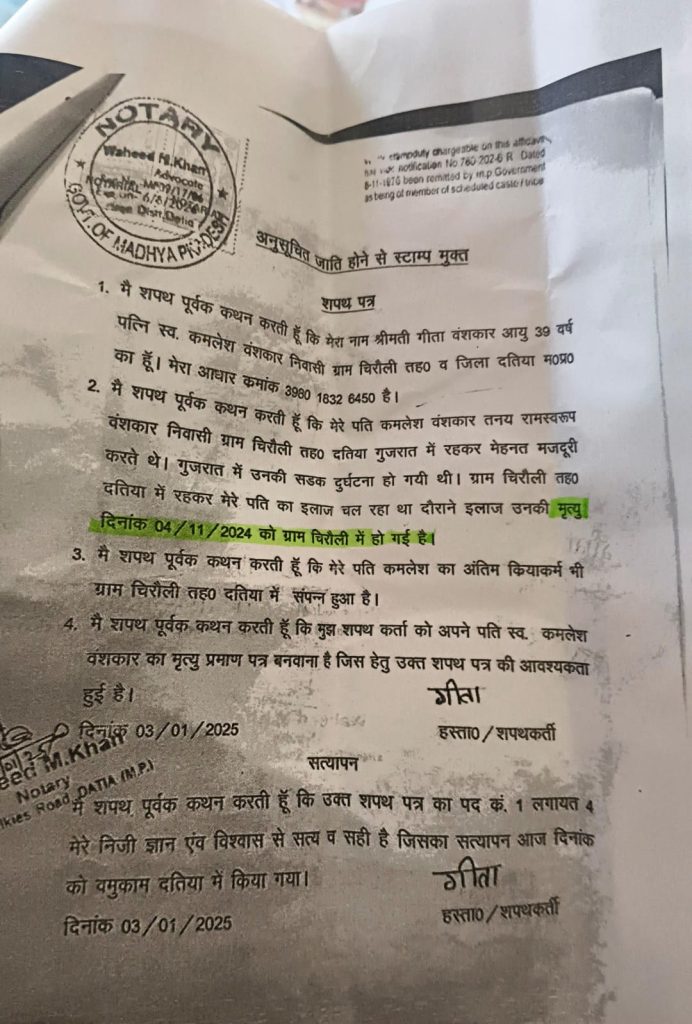 NOTARY
Waheed M.Khan
Advocate
GOVT. OF MADHYA PRADESH
stampduty chargeable on this affidavit
notification No 780-202-6 R. Dated
been remitted by m.p Government
as being of member of scheduled caste / tribe
अनुसूचित जाति होने से स्टाम्प मुक्त
शपथ पत्र
1. मै शपथ पूर्वक कथन करती हूँ कि मेरा नाम श्रीमती गीता वंशकार आयु 39 वर्ष
पत्नि स्व. कमलेश वंशकार निवासी ग्राम चिरौली तह0 व जिला दतिया म0प्र0
का हूँ। मेरा आधार कमांक 3980 1832 6450 है।
2. मै शपथ पूर्वक कथन करती हूँ कि मेरे पति कमलेश वंशकार तनय रामस्वरूप
वंशकार निवासी ग्राम चिरौली तह0 दतिया गुजरात में रहकर मेहनत मजदूरी
करते थे। गुजरात में उनकी सडक दुर्घटना हो गयी थी। ग्राम चिरौली तह0
दतिया में रहकर मेरे पति का इलाज चल रहा था दौराने इलाज उनकी मृत्यु
दिनांक 04/11/2024 को ग्राम चिरौली में हो गई है।
3. मै शपथ पूर्वक कथन करती हूँ कि मेरे पति कमलेश का अंतिम कियाकर्म भी
ग्राम चिरौली तह0 दतिया में संपन्न हुआ है।
4. मै शपथ पूर्वक कथन करती हूँ कि मुझ शपथ कर्ता को अपने पति स्व. कमलेश
वंशकार का मृत्यु प्रमाण पत्र बनवाना है जिस हेतु उक्त शपथ पत्र की आवश्यकता
हुई है।
गीता
दिनांक 03/01/2025
हस्ता0/शपथकर्ती
सत्यापन
eed M.Khan
Notary
lkies Road, DATIA (M.P.)
मै शपथ पूर्वक कथन करती हूँ कि उक्त शपथ पत्र का पद कं. 1 लगायत 4
मेरे निजी ज्ञान एंव विश्वास से सत्य व सही है जिसका सत्यापन आज दिनांक
को वमुकाम दतिया में किया गया।
गीता
दिनांक 03/01/2025
हस्ता0/शपथकर्ती